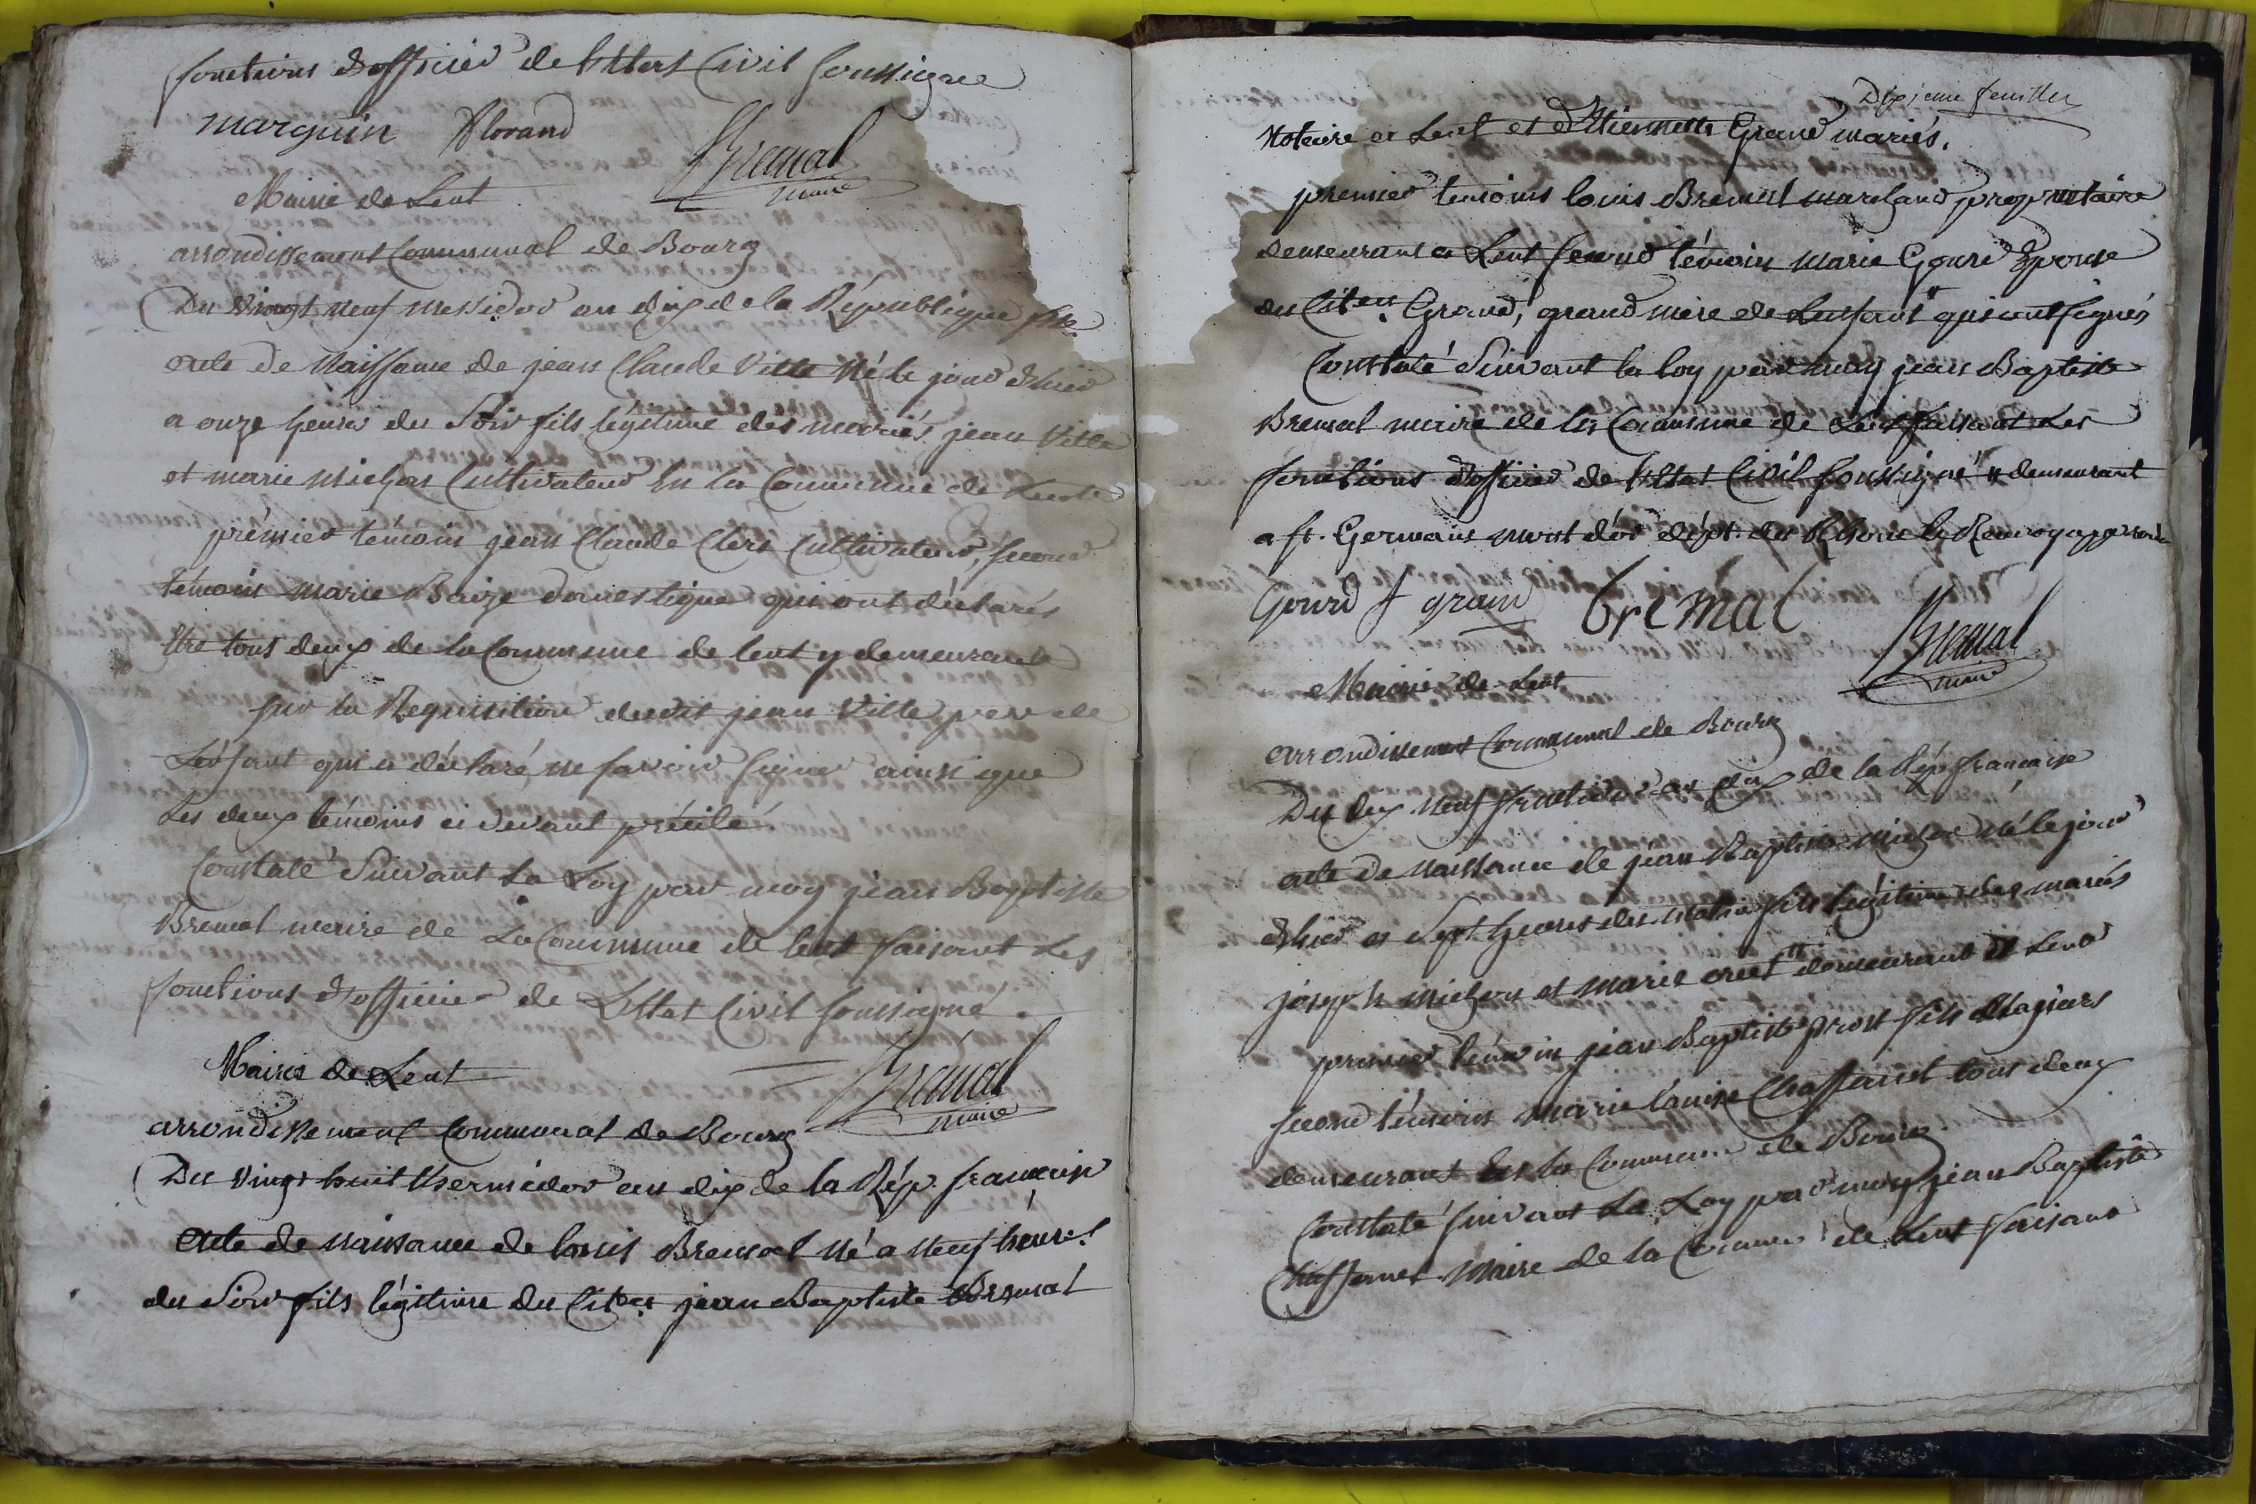 fonctions d'officier de l'Etat Civil soussigné
marguin Morand
Bremal
maire
Mairie de Lent
arrondissement Communal de Bourg
Du vingt neuf messidor an dix de la République fse
acte de Naissance de jean Claude Ville Né le jour d'hier
a onze heures du Soir fils légitime des mariés jean Ville
et marie Michon Cultivateur En la Commune de Lent
prémier témoin jean Claude Clerc Cultivateur, second
témoin marie Baize domestique qui ont déclarés
Etre tous deux de la Commune de lent y demeurants
sur la Requisition dudit jean Ville pere de
L'enfant qui a déclaré ne savoir signer ainsi que
Les deux témoins ci devant précités
Constaté Suivant La Loy par moy jean Baptiste
Bremal maire de La Commune de lent faisant Les
fonctions d'officier de L'Etat Civil soussigné.
Bremal
maire
Mairie de Lent
arrondissement Communal de Bourg
Du vingt huit thermidor an dix de la Rép. francaise
acte de naissance de louis Bremal né a neuf heures
du Soir fils légitime du Citen. jean Baptiste Bremal
Dixieme feuillet
Notaire a Lent et d'Etiennette Grand mariés,
premier temoins louis Bremal marchand propriétaire
demeurant a Lent second témoin marie Gourd Epouse
du Citen. Grand, grand mere de L'enfant " qui ont signés
Constaté Suivant la loy par moy jean Baptiste
Bremal maire de la Commune de Lent faisant Les
fonctions d'officier de l'Etat Civil soussigné " demeurant
a st. Germain mont d'or dépt. du Rhone le Renvoy approuvé
Gourd f grand bremal
Bremal
maire
Mairie de Lent
arrondissement Communal de Bourg
Du dix neuf fructidor an dix de la Rép francaise
acte de naissance de jean Baptiste Michon né le jour
d'hier a Sept heures du Matin fils légitime des mariés
joseph michon et marie demeurant a Lent
premier témoin jean Baptiste prost fils
second témoins marie louise Chassanel tous deux
demeurant En la Commune de Bourg
Constaté suivant La Loy par moy jean Baptiste
maire de la Commune de Lent faisant